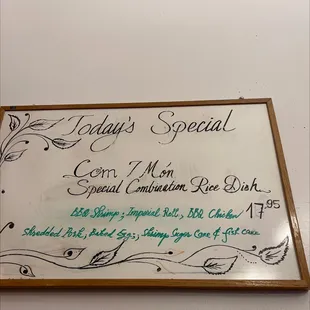 Today's Special
Com 7 Món
Special Combination Rice Dish
BBQ Shrimp, Imperial Roll, BBQ Chicken 17.95
Shredded Pork, Baked Eggs, Shrimp Sugar Cane & fish cake